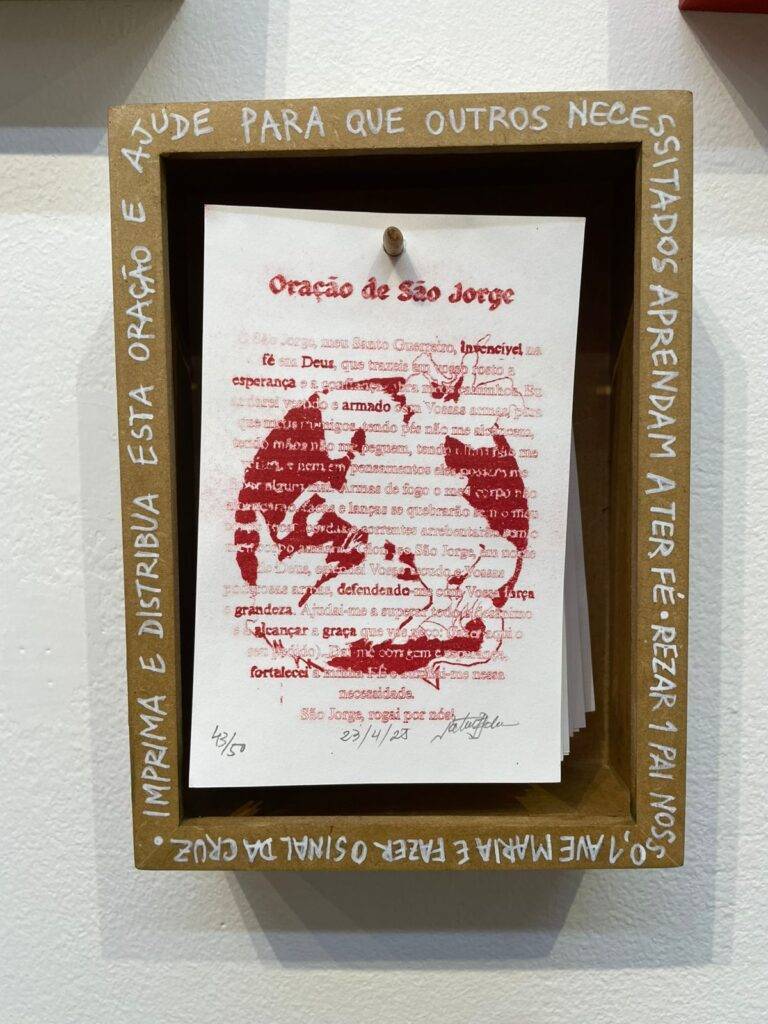 IMPRIMA E DISTRIBUA ESTA ORAÇÃO E AJUDE PARA QUE OUTROS NECESSITADOS APRENDAM A TER FÉ • REZAR 1 PAI NOSSO, 1 AVE MARIA E FAZER O SINAL DA CRUZ.
Oração de São Jorge
São Jorge, meu Santo Guerreiro, invencível na
fé em Deus, que trazeis em vosso rosto a
esperança e a confiança
armado Vossas armas, para
que meus inimigos, tendo pés não me alcancem,
tendo mãos não me peguem, tendo não me
e nem em pensamentos eles possam me
algum mal. Armas de fogo o meu corpo não
facas e lanças se quebrarão sem o meu
correntes arrebentarão
São Jorge, em nome
de Deus, Vossas
poderosas armas, defendendo-me com Vossa força
e grandeza. Ajudai-me a superar
e a alcançar a graça que vos peço: aqui o
seu pedido). Dai-me coragem e esperança,
fortalecei a minha FÉ e me nessa
necessidade.
São Jorge, rogai por nós!
43/50 23/4/25